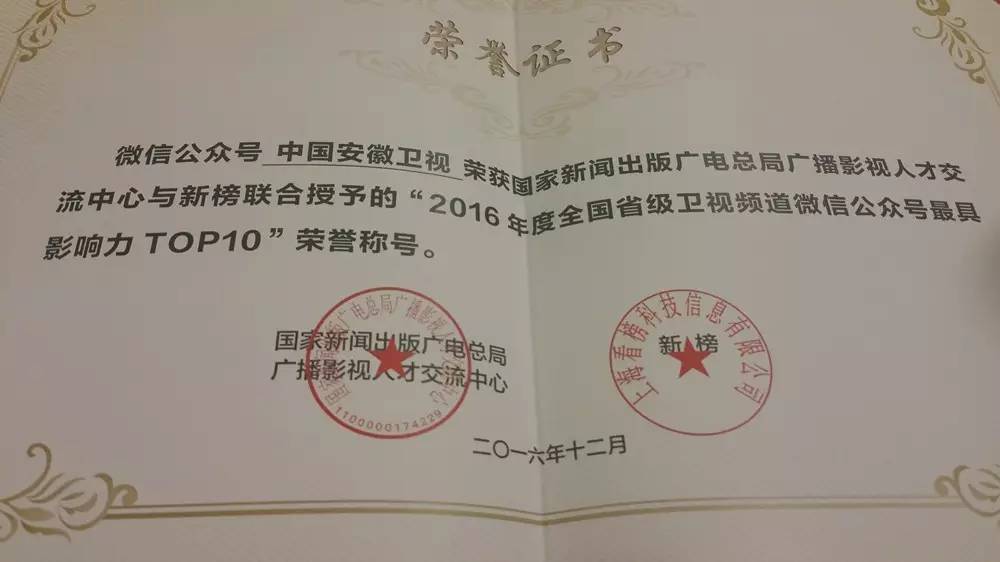 荣誉证书
微信公众号 中国安徽卫视 荣获国家新闻出版广电总局广播影视人才交
流中心与新榜联合授予的“2016年度全国省级卫视频道微信公众号最具
影响力TOP10”荣誉称号。
国家新闻出版广电总局
广播影视人才交流中心
1100000174229
新榜
上海看榜科技信息有限公司
二〇一六年十二月